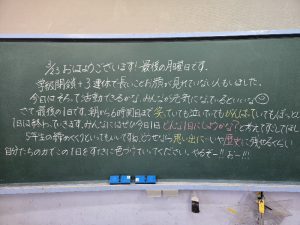 3/23 おはようございます！最後の月曜日です。
学級閉鎖+3連休で長いことお顔が見れていない人もいました。
今日はそろって活動できるかな。みんなが元気になっているといいな
さて最後の1日です。朝から6時間目まで笑っていても泣いていてもがんばっていてもぼーっと
1日は終わっていきます。みんなにはぜひ今日1日どんな1日にしようかな?と考えてすごしてほしい
5年生の締めくくりといってもいいですね。どうせなら思い出に…いや歴史に残せるくらい
自分たちの力でこの1日をすてきに色づけていってください。やるぞー!!おー!!!